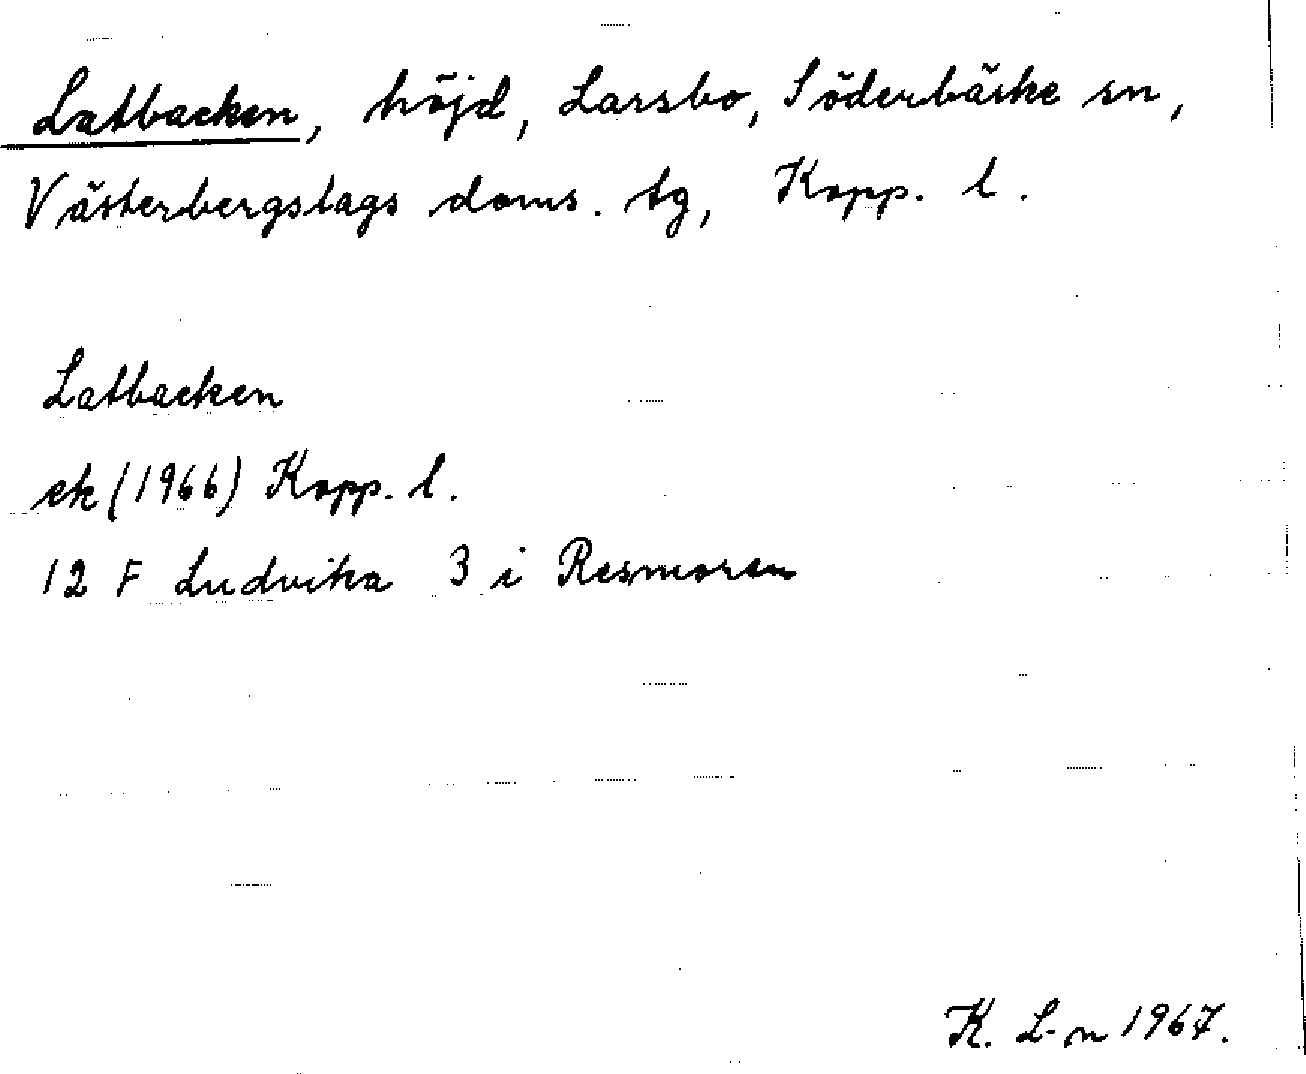 Latbacken, höjd, Larsbo, Söderbärke sn,
Västerbergslags doms. tg, Kopp. l.
Latbacken
ek (1966) Kopp. l.
12 F Ludvika 3 i Resmoren
K. L-n 1967.